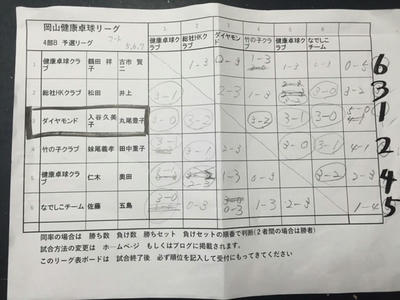 岡山健康卓球リーグ
4部B 予選リーグ
コート
5,6,7
1 2 3 4 5 6
健康卓球クラブ 総社HKクラブ ダイヤモンド 竹の子クラブ 健康卓球クラブ なでしこチーム
1 健康卓球クラブ 鶴田 祥子 古市 賢二 1-3 0-3 1-3 1-3 0-5 6
2 総社HKクラブ 松田 井上 3-1 2-3 3-1 3-0 3
3 ダイヤモンド 入谷久美子 丸尾豊子 3-0 3-2 3-2 3-1 3-0 1
4 竹の子クラブ 妹尾義孝 田中重子 3-1 2-3 3-0 3-1 4-1 2
5 健康卓球クラブ 仁木 奥田 1-3 0-3 3-2 4
6 なでしこチーム 佐藤 五島 0-3 1-3 2-3 1-4 5
同率の場合は 勝ち数 負け数 勝ちセット 負けセットの順番で判断(2者間の場合は勝者)
試合方法の変更は ホームページ もしくはブログに掲載されます。
このリーグ表ボードは 試合終了後 必ず順位を記入して受付にもってきてください